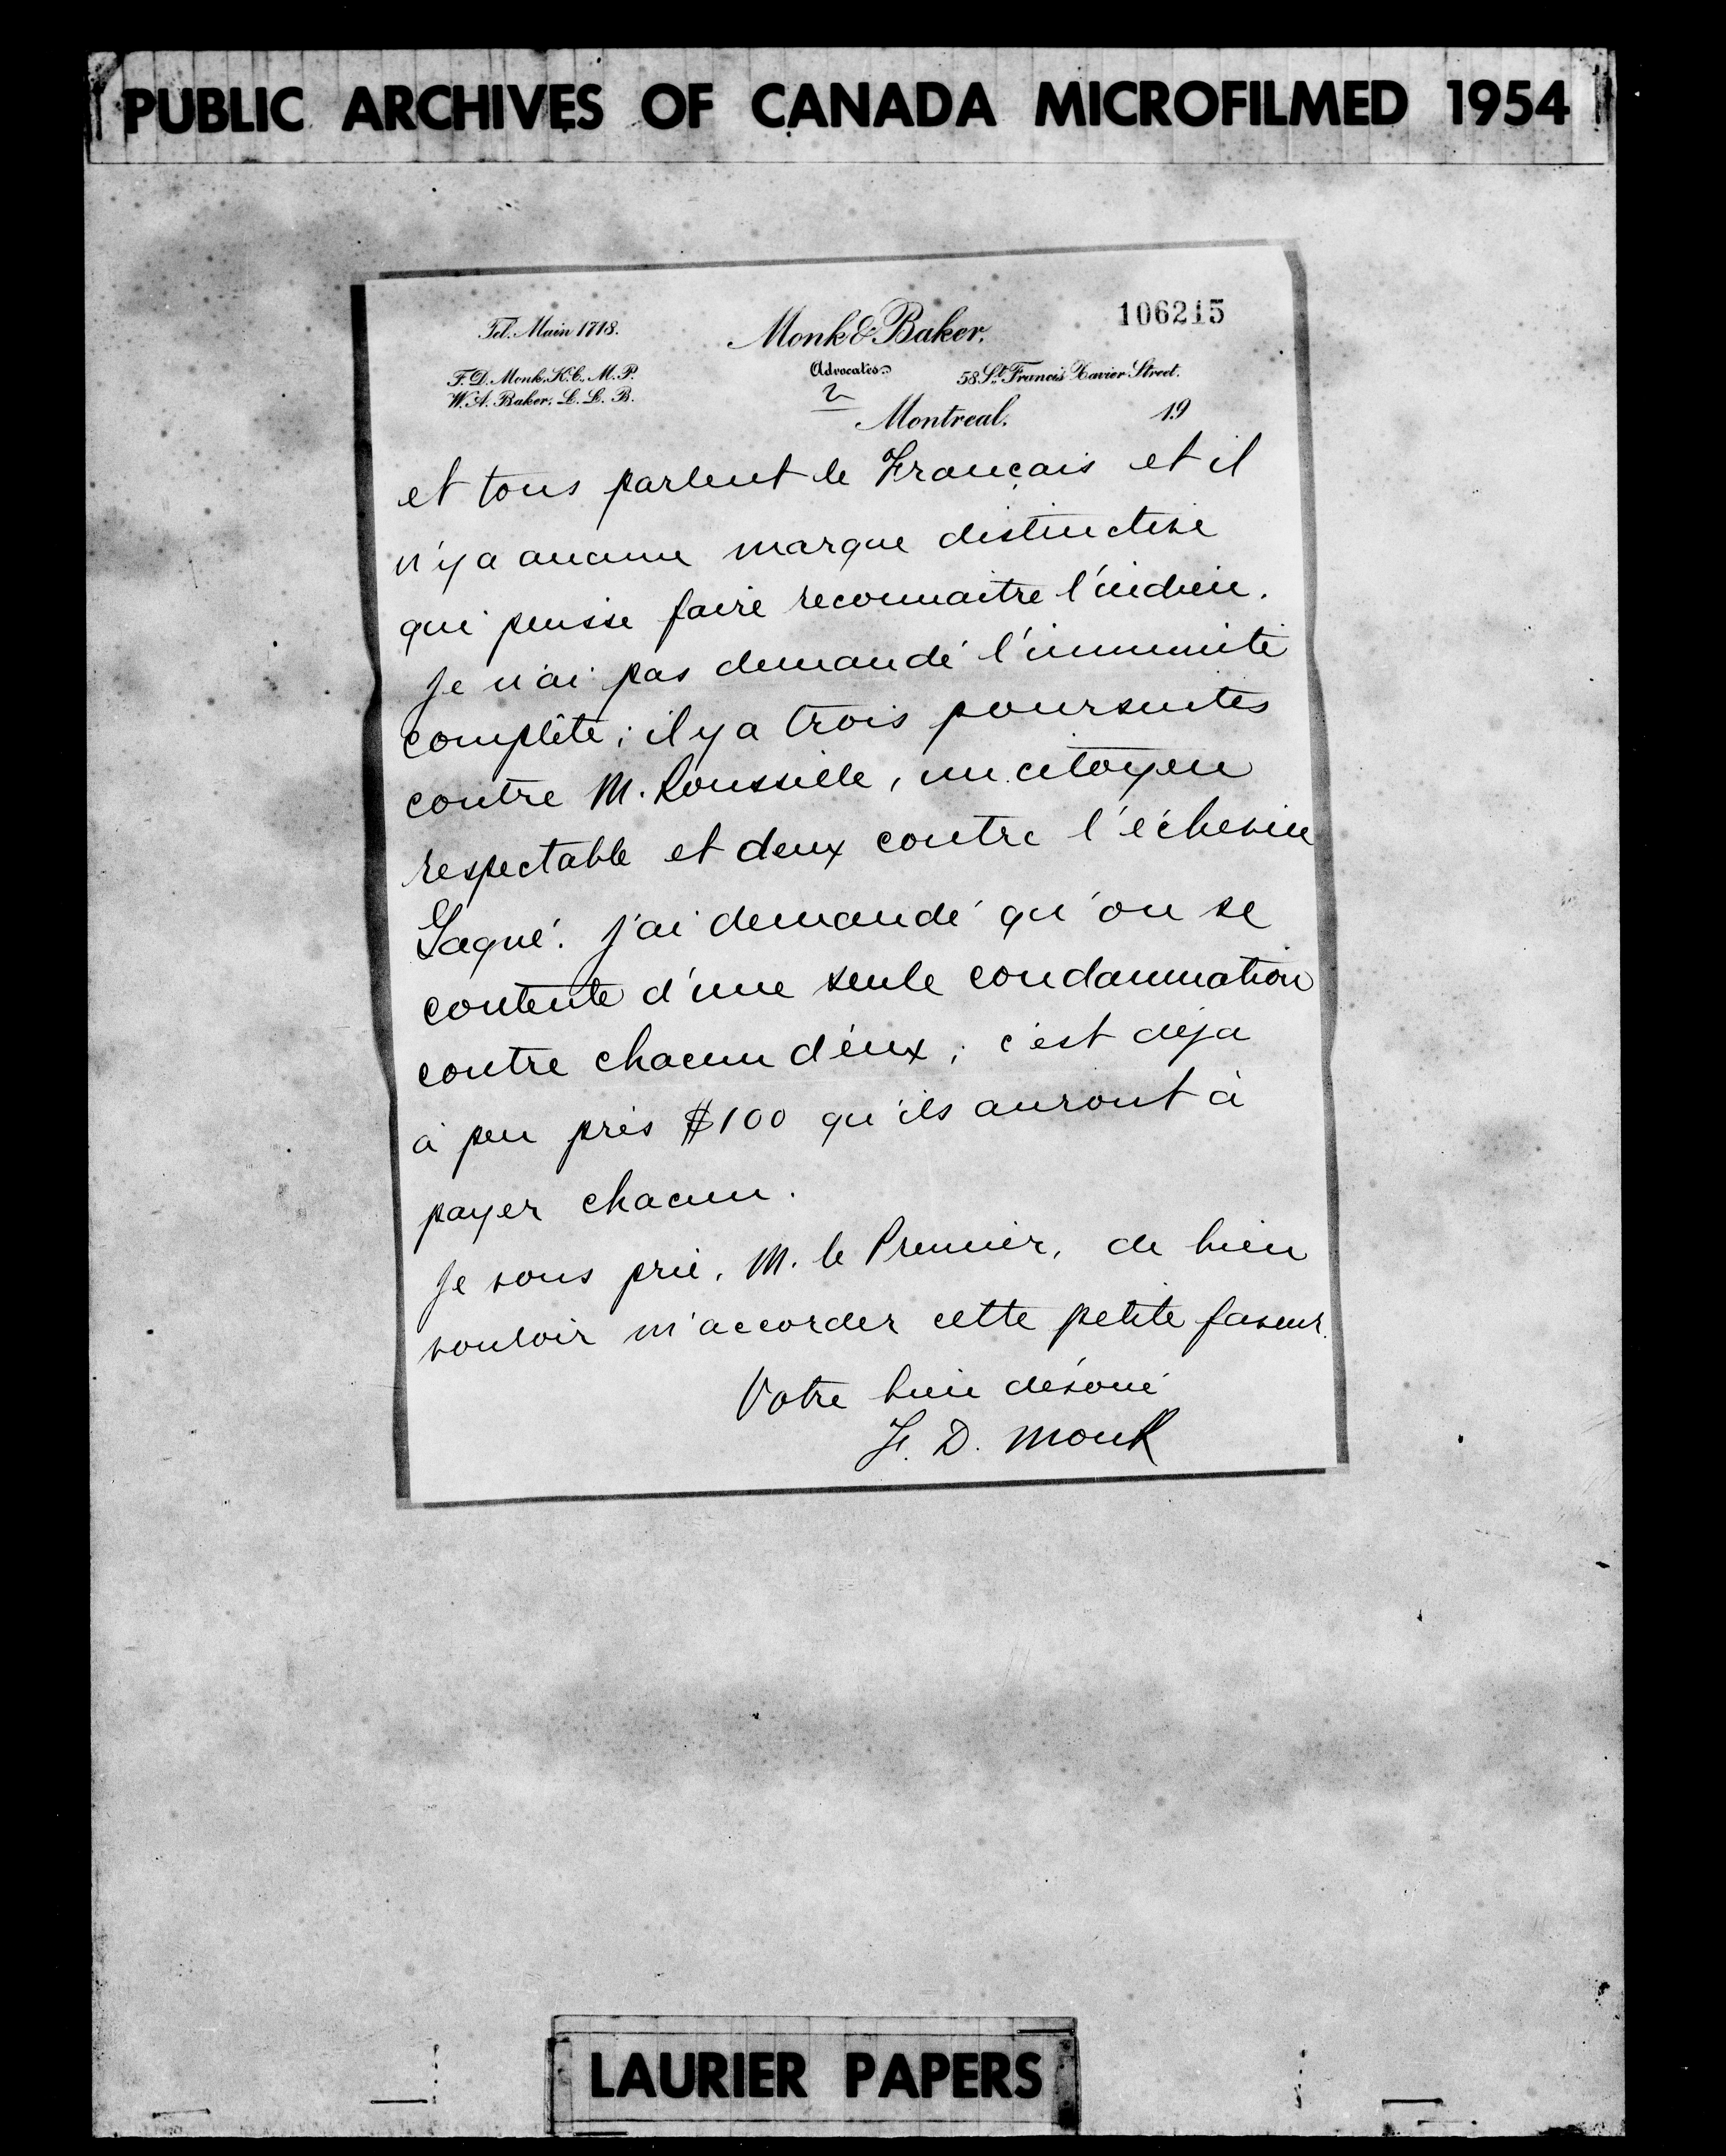 PUBLIC ARCHIVES OF CANADA MICROFILMED 1954
106215
Tel. Main 1718.
Monk & Baker.
Advocates
F. D. Monk, K.C., M.P.
W. A. Baker, L. L. B.
58 St. Francis Xavier Street.
2
Montreal. 19
et tous parlent le Français et il
n'y a aucune marque distinctive
qui puisse faire reconnaitre l'indien.
Je n'ai pas demandé l'immunité
complète; il y a trois poursuites
contre M. Roussille, un citoyen
respectable et deux contre l'échevin
Gagné. J'ai demandé qu'on se
contente d'une seule condamnation
contre chacun d'eux; c'est déjà
à peu près $100 qu'ils auront à
payer chacun.
Je vous prie, M. le Premier, de bien
vouloir m'accorder cette petite faveur.
Votre bien dévoué
F. D. Monk
LAURIER PAPERS